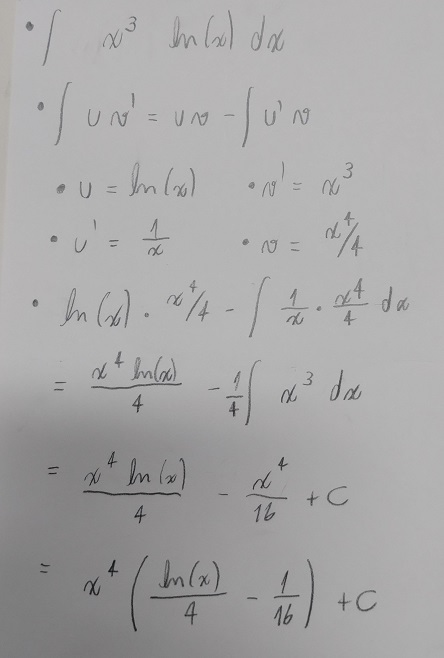 • ∫ x³ ln(x) dx
• ∫ u v' = u v - ∫ u' v
• u = ln(x) • v' = x³
• u' = 1/x • v = x⁴/4
• ln(x) · x⁴/4 - ∫ 1/x · x⁴/4 dx
= x⁴ ln(x)/4 - 1/4 ∫ x³ dx
= x⁴ ln(x)/4 - x⁴/16 + C
= x⁴ (ln(x)/4 - 1/16) + C